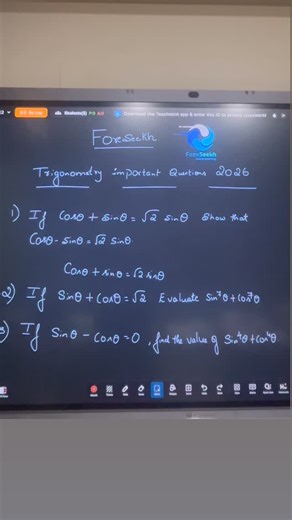 Download the Teachmint app & enter this ID to
ForeSeekh
ForeSeekh
Trigonometry important Questions 2026
1) If Cosθ + Sinθ = √2 Sinθ Show that
Cosθ - Sinθ = √2 Sinθ
Cosθ + sinθ = √2 sinθ
2) If Sinθ + Cosθ = √2 Evaluate Sin⁷θ + Cos⁷θ
3) If Sinθ - Cosθ = 0, find the value of Sin⁴θ + Cos⁴θ